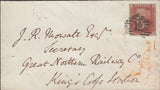 J. R. Mowatt Esqr.
Secretary
Great Northern Railway Co
King's Cross London